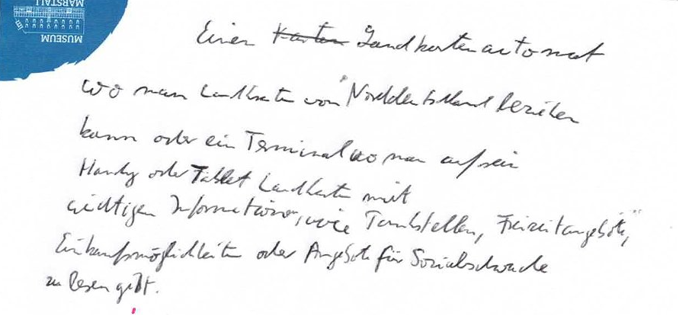 MUSEUM
MARSTALL
Einen Karten Landkartenautomat
wo man Landkarten von Norddeutschland beziehen
kann oder ein Terminal wo man auf sein
Handy oder Tablet Landkarten mit
wichtigen Informationen, wie Tankstellen, Freizeitangebote,
Einkaufsmöglichkeiten oder Angebote für Sozialschwache
zu lesen gibt.